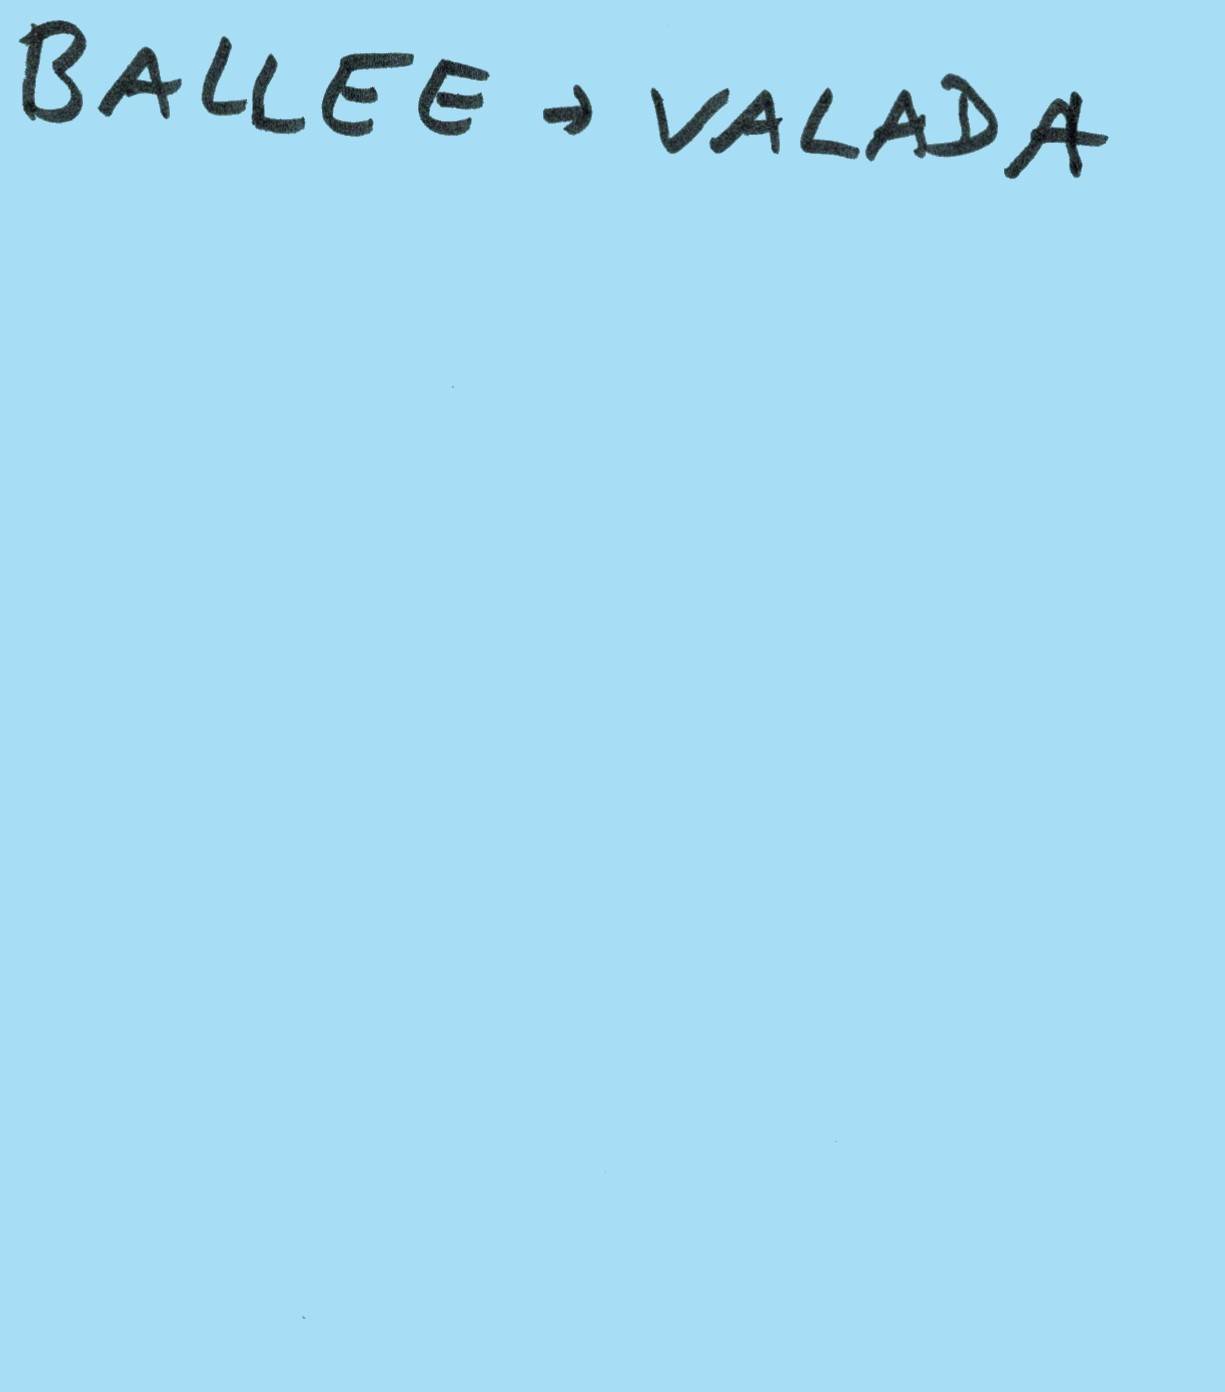 BALLEE → VALADA